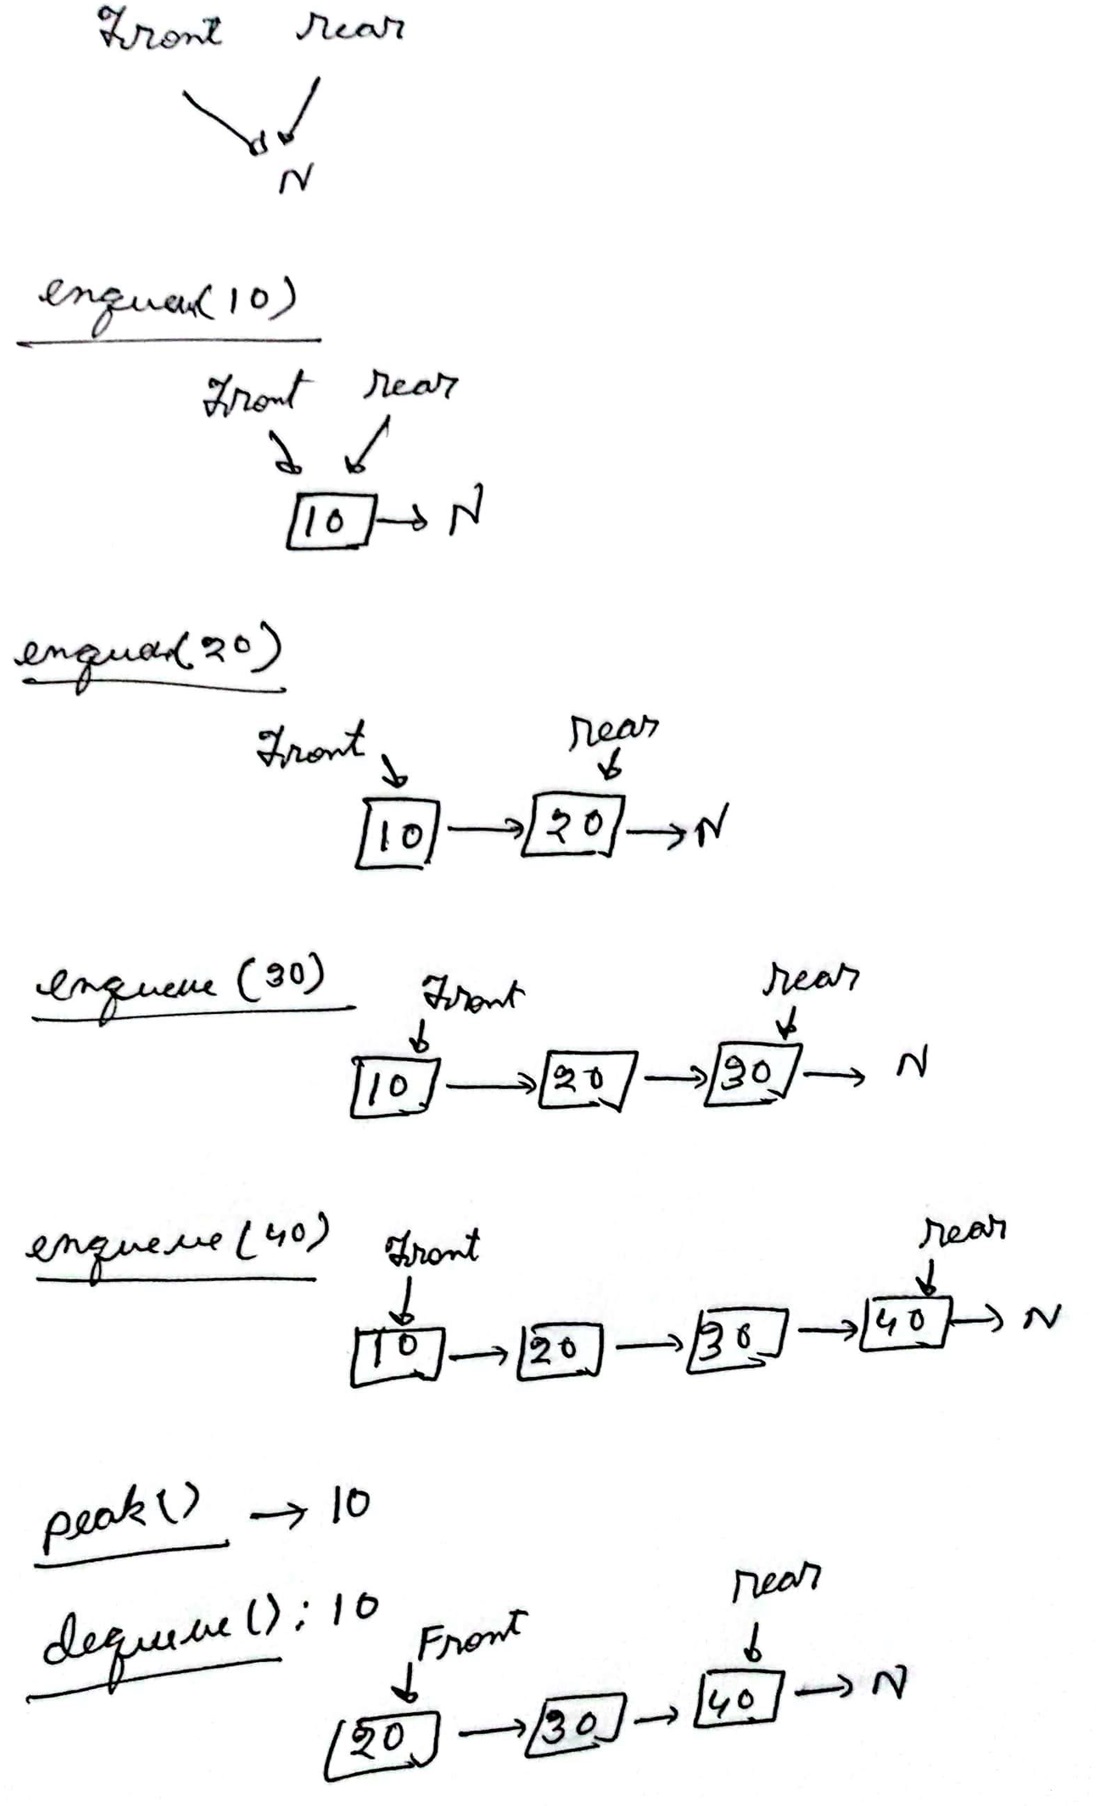 Front rear
N
enqueue(10)
Front rear
10 → N
enqueue(20)
Front rear
10 → 20 → N
enqueue (30)
Front rear
10 → 20 → 30 → N
enqueue(40)
Front rear
10 → 20 → 30 → 40 → N
peak() → 10
dequeue() : 10
Front rear
20 → 30 → 40 → N